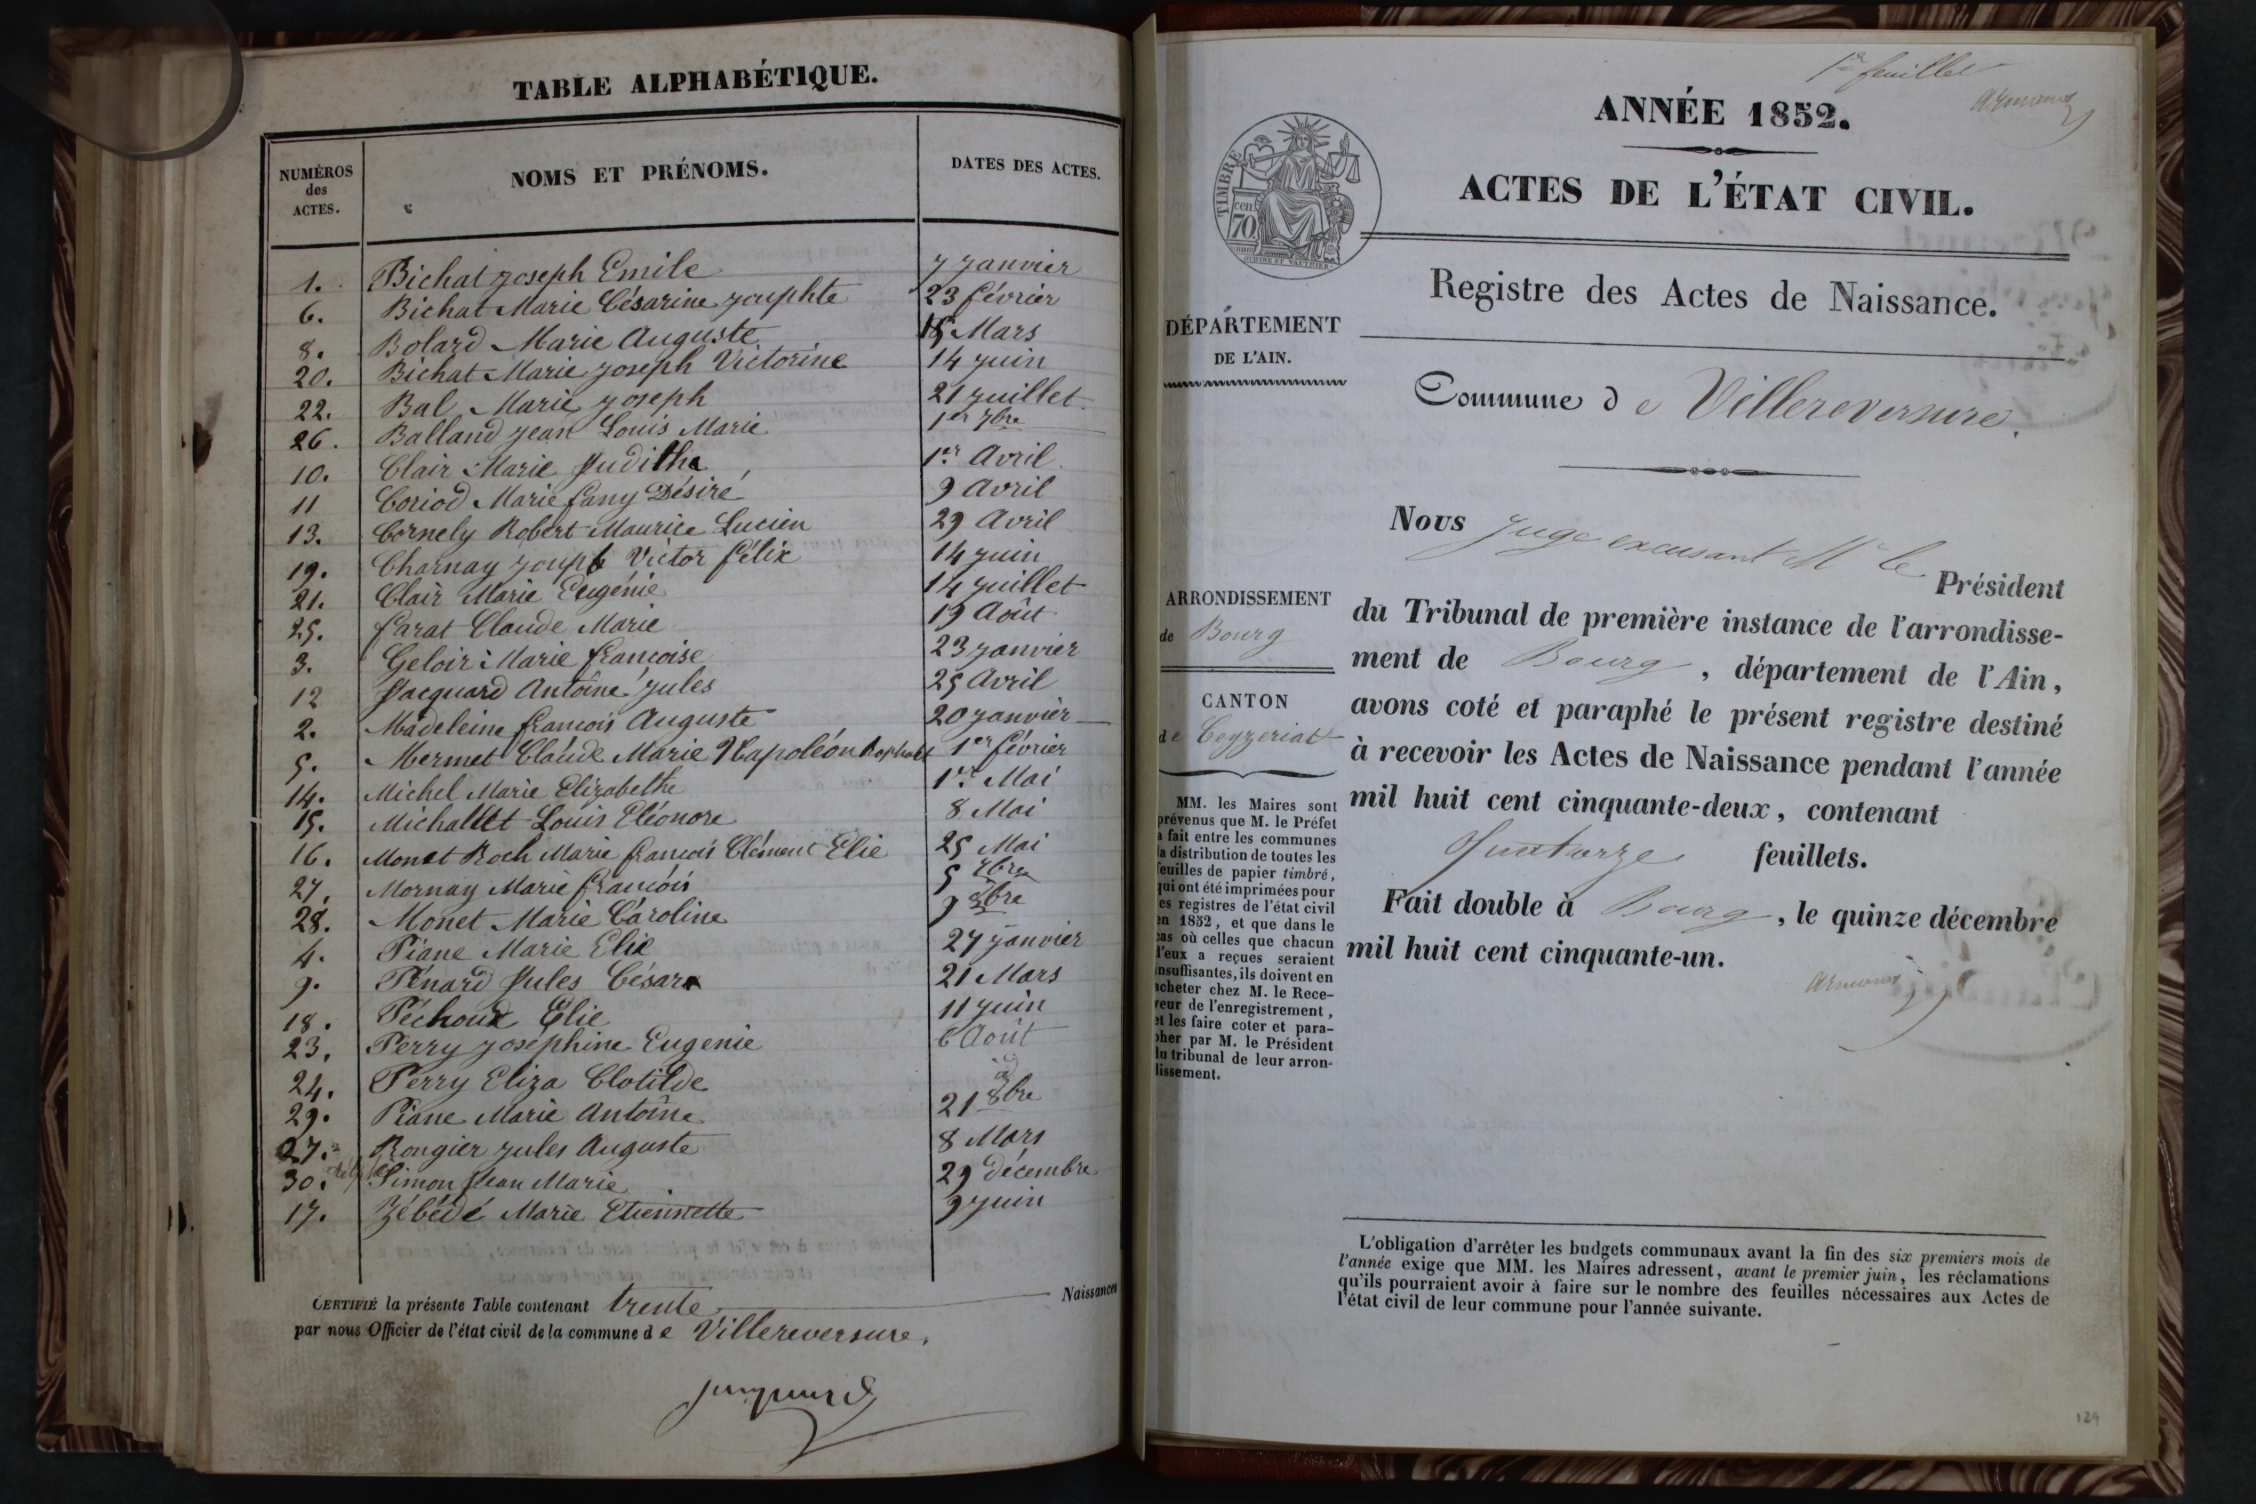 TABLE ALPHABÉTIQUE.
NUMÉROS des ACTES. NOMS ET PRÉNOMS. DATES DES ACTES.
1. Bichat Joseph Emile 7 Janvier
6. Bichat Marie Césarine Josephte 23 Février
8. Bolard Marie Auguste 15 Mars
20. Bichat Marie Joseph Victorine 14 Juin
22. Bal Marie Joseph 21 Juillet
26. Balland Jean Louis Marie 1er 7bre
10. Clair Marie Juditha 1er Avril
11 Coriod Marie Fany Désiré 9 Avril
13. Cornely Robert Maurice Lucien 29 Avril
19. Charnay Joseph Victor Félix 14 Juin
21. Clair Marie Eugénie 14 Juillet
25. Farat Claude Marie 19 Août
3. Geloir Marie Françoise 23 Janvier
12 Jacquard Antoine Jules 25 Avril
2. Madeleine François Auguste 20 Janvier
5. Mermet Claude Marie Napoléon 1er Février
14. Michel Marie Elizabethe 1er Mai
15. Michallet Louis Eléonore 8 Mai
16. Monet Roch Marie François Clément Elie 25 Mai
27. Mornay Marie François 5
28. Monet Marie Caroline 9 8bre
4. Piane Marie Elie 27 Janvier
9. Pénard Jules César 21 Mars
18. Péchoux Elie 11 Juin
23. Perry Joséphine Eugenie 6 Août
24. Perry Eliza Clotilde id
29. Piane Marie Antoine 21 8bre
7. Rongier Jules Auguste 8 Mars
30. Simon Jean Marie 29 décembre
17. Zébédé Marie Etiennette 9 Juin
CERTIFIÉ la présente Table contenant trente Naissances
par nous Officier de l'état civil de la commune de Villereversure.
Jacquard
1er feuillet
ANNÉE 1852.
ACTES DE L'ÉTAT CIVIL.
TIMBRE
cen.
70
Registre des Actes de Naissance.
DÉPARTEMENT
DE L'AIN.
Commune de Villereversure.
Nous Juge excusant Mr le Président
du Tribunal de première instance de l'arrondisse-
ment de Bourg, département de l'Ain,
avons coté et paraphé le présent registre destiné
à recevoir les Actes de Naissance pendant l'année
mil huit cent cinquante-deux, contenant
Quatorze feuillets.
Fait double à Bourg, le quinze décembre
mil huit cent cinquante-un.
ARRONDISSEMENT
de Bourg
CANTON
de Ceyzeriat
MM. les Maires sont
prévenus que M. le Préfet
a fait entre les communes
la distribution de toutes les
feuilles de papier timbré,
qui ont été imprimées pour
les registres de l'état civil
en 1852, et que dans le
cas où celles que chacun
d'eux a reçues seraient
insuffisantes, ils doivent en
acheter chez M. le Rece-
veur de l'enregistrement,
et les faire coter et para-
pher par M. le Président
du tribunal de leur arron-
dissement.
L'obligation d'arrêter les budgets communaux avant la fin des six premiers mois de
l'année exige que MM. les Maires adressent, avant le premier juin, les réclamations
qu'ils pourraient avoir à faire sur le nombre des feuilles nécessaires aux Actes de
l'état civil de leur commune pour l'année suivante.
129